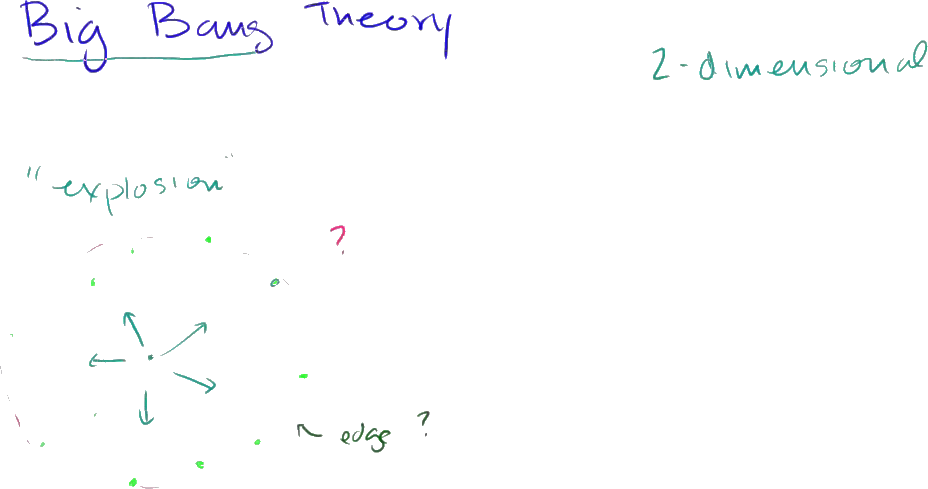 Big Bang Theory
2-dimensional
"explosion"
?
edge ?